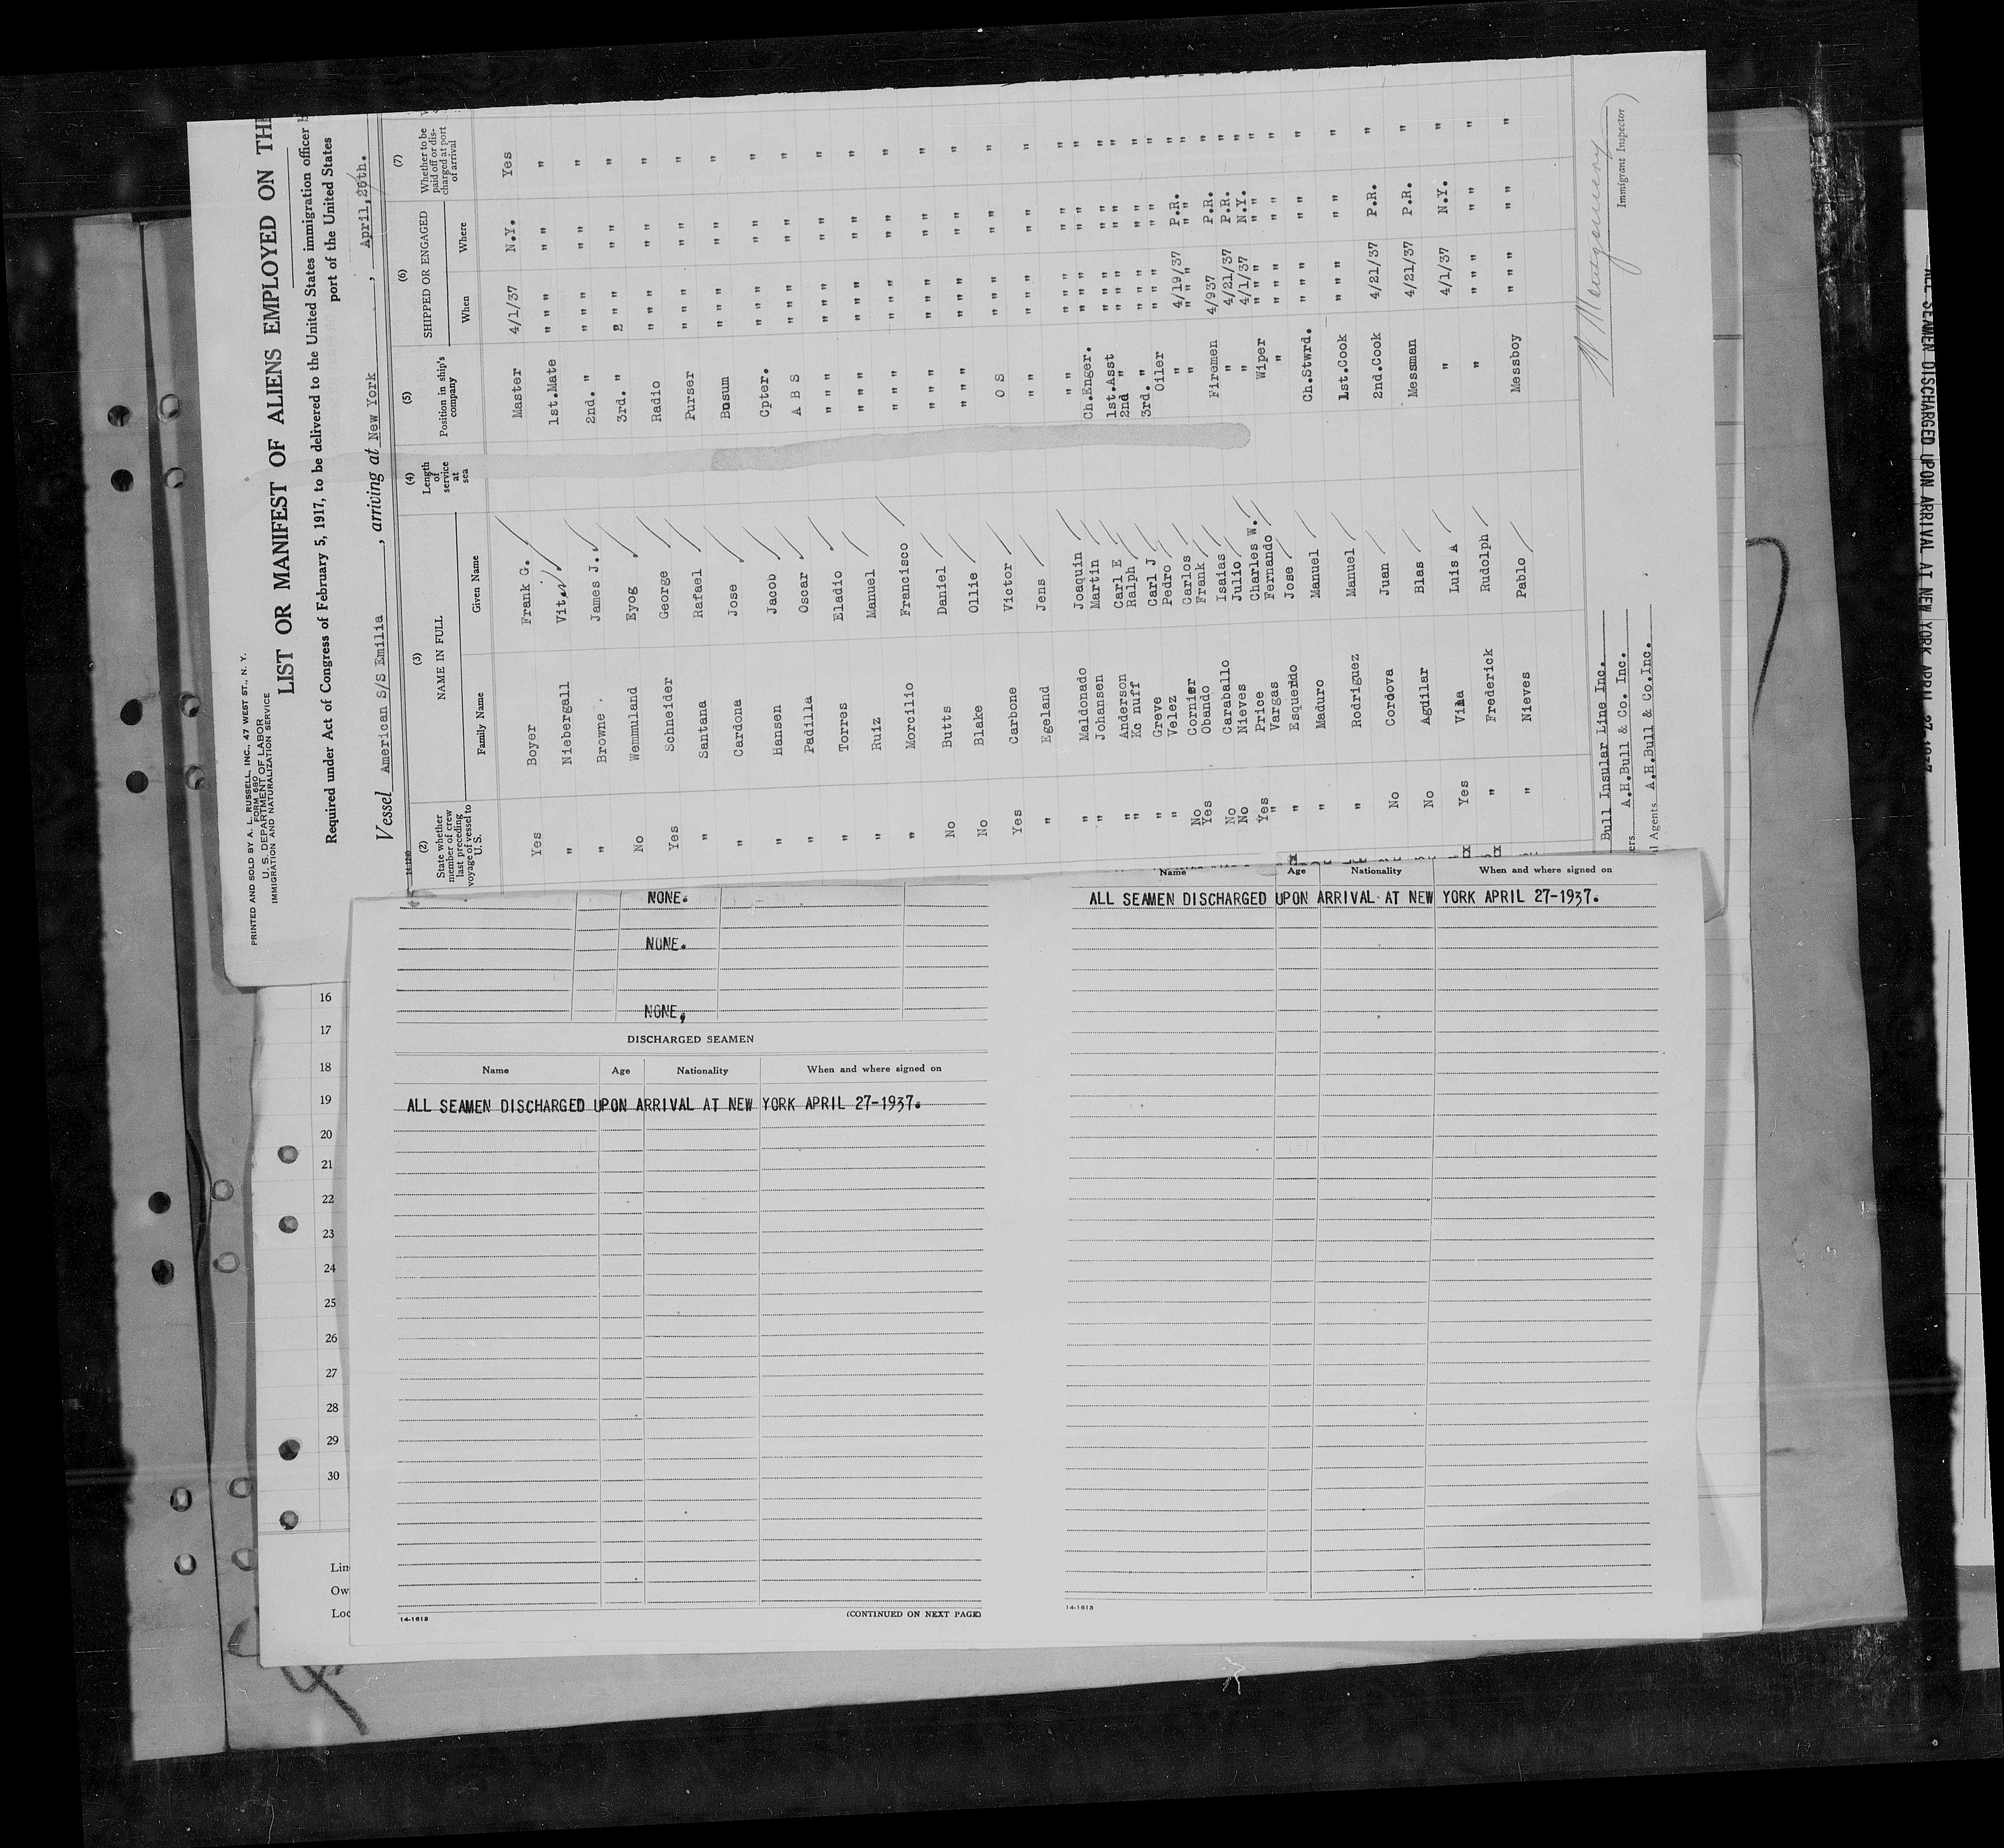 PRINTED AND SOLD BY A. L. RUSSELL, INC., 47 WEST ST., N. Y.
FORM 680
U. S. DEPARTMENT OF LABOR
IMMIGRATION AND NATURALIZATION SERVICE
LIST OR MANIFEST OF ALIENS EMPLOYED ON THE
Required under Act of Congress of February 5, 1917, to be delivered to the United States immigration officer
port of the United States
Vessel American S/S Emilia , arriving at New York , April,26th.
(2) State whether member of crew last preceding voyage of vessel to U. S. (3) NAME IN FULL Family Name Given Name (4) Length of service at sea (5) Position in ship's company (6) SHIPPED OR ENGAGED When Where (7) Whether to be paid off or discharged at port of arrival
Yes Boyer Frank G. Master 4/1/37 N.Y. Yes
" Niebergall Vit 1st.Mate " " " " " "
" Browne James J. 2nd. " " " " " " "
No Wemmuland Eyog 3rd. " " " " " "
Yes Schneider George Radio " " " " " "
" Santana Rafael Purser " " " " " "
" Cardona Jose Bosum " " " " " "
" Hansen Jacob Cpter. " " " " " "
" Padilla Oscar A B S " " " " " "
" Torres Eladio " " " " " " " " "
" Ruiz Manuel " " " " " " " " "
" Morcilio Francisco " " " " " " " " "
No Butts Daniel " " " " " " " " "
No Blake Ollie " " " " " " " " "
Yes Carbone Victor O S " " " " " "
" Egeland Jens " " " " " " " "
" Maldonado Joaquin " " " " " " " "
" Johansen Martin Ch.Enger. " " " " " "
" Anderson Carl E 1st.Asst " " " " " "
" Mc nuff Ralph 2nd " " " " " " "
" Greve Carl J 3rd. " " " " " " "
" Velez Pedro Oiler " " " " " "
No Cornier Carlos " 4/19/37 P.R. "
Yes Obando Frank " " " " " " "
No Caraballo Isaias Firemen 4/937 P.R. "
No Nieves Julio " 4/21/37 P.R. "
Yes Price Charles W. " 4/1/37 N.Y. "
" Vargas Fernando Wiper " " " " " "
" Esquerdo Jose " " " " " " "
" Maduro Manuel Ch.Stwrd. " " " " " "
" Rodriguez Manuel 1st.Cook " " " " " "
No Cordova Juan 2nd.Cook 4/21/37 P.R. "
No Agilar Blas Messman 4/21/37 P.R. "
Yes Vina Luis A " 4/1/37 N.Y. "
" Frederick Rudolph " " " " " " "
" Nieves Pablo Messboy " " " " " "
Bull Insular Line Inc.
ers A.H.Bull & Co. Inc.
l Agents A.H.Bull & Co.Inc.
Montgomery
Immigrant Inspector
NONE.
NONE.
NONE,
DISCHARGED SEAMEN
Name Age Nationality When and where signed on
ALL SEAMEN DISCHARGED UPON ARRIVAL AT NEW YORK APRIL 27-1937.
14-1613
(CONTINUED ON NEXT PAGE)
Name Age Nationality When and where signed on
ALL SEAMEN DISCHARGED UPON ARRIVAL AT NEW YORK APRIL 27-1937.
14-1613
16
17
18
19
20
21
22
23
24
25
26
27
28
29
30
Lin
Ow
Loc
ALL SEAMEN DISCHARGED UPON ARRIVAL AT NEW YORK APRIL 27-1937